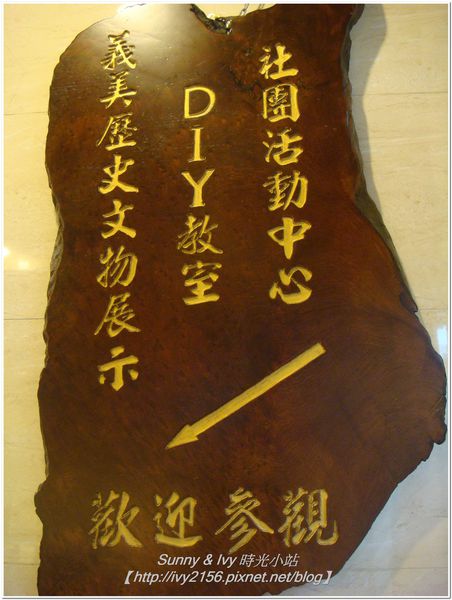 社團活動中心
DIY教室
義美歷史文物展示
歡迎參觀
Sunny & Ivy 時光小站
【http://ivy2156.pixnet.net/blog】